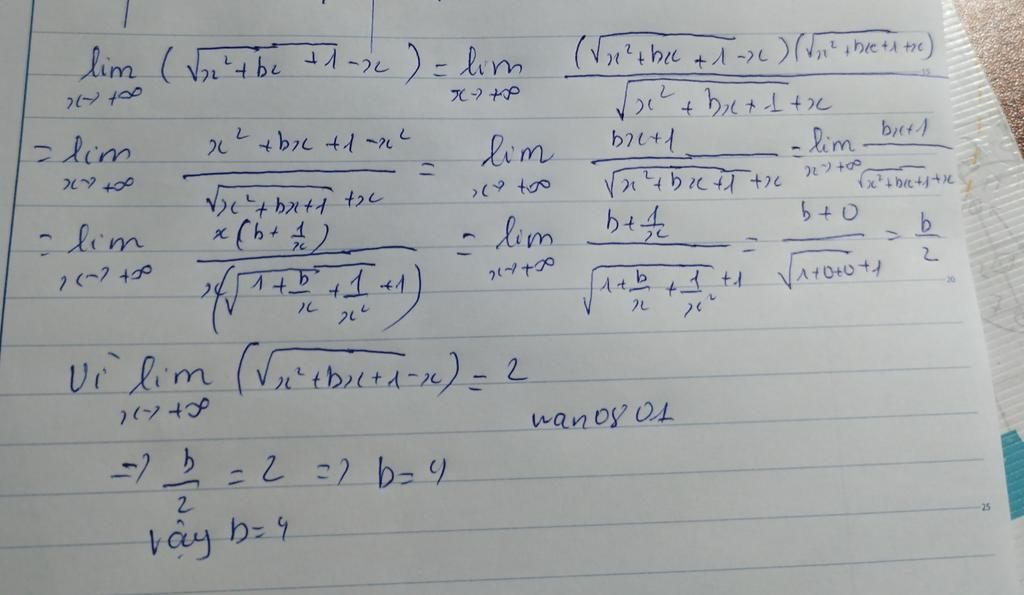 lim x→+∞ (√(x²+bx+1) - x) = lim x→+∞ (√(x²+bx+1) - x)(√(x²+bx+1) + x) / (√(x²+bx+1) + x)
= lim x→+∞ (x²+bx+1-x²) / (√(x²+bx+1) + x) = lim x→+∞ (bx+1) / (√(x²+bx+1) + x) = lim x→+∞ (bx+1) / (√(x²+bx+1) + x)
= lim x→+∞ x(b + 1/x) / x(√(1 + b/x + 1/x²) + 1) = lim x→+∞ (b + 1/x) / (√(1 + b/x + 1/x²) + 1) = (b+0) / (√(1+0+0) + 1) = b/2
Vì lim x→+∞ (√(x²+bx+1) - x) = 2
wan0801
=> b/2 = 2 => b = 4
Vậy b = 4
25